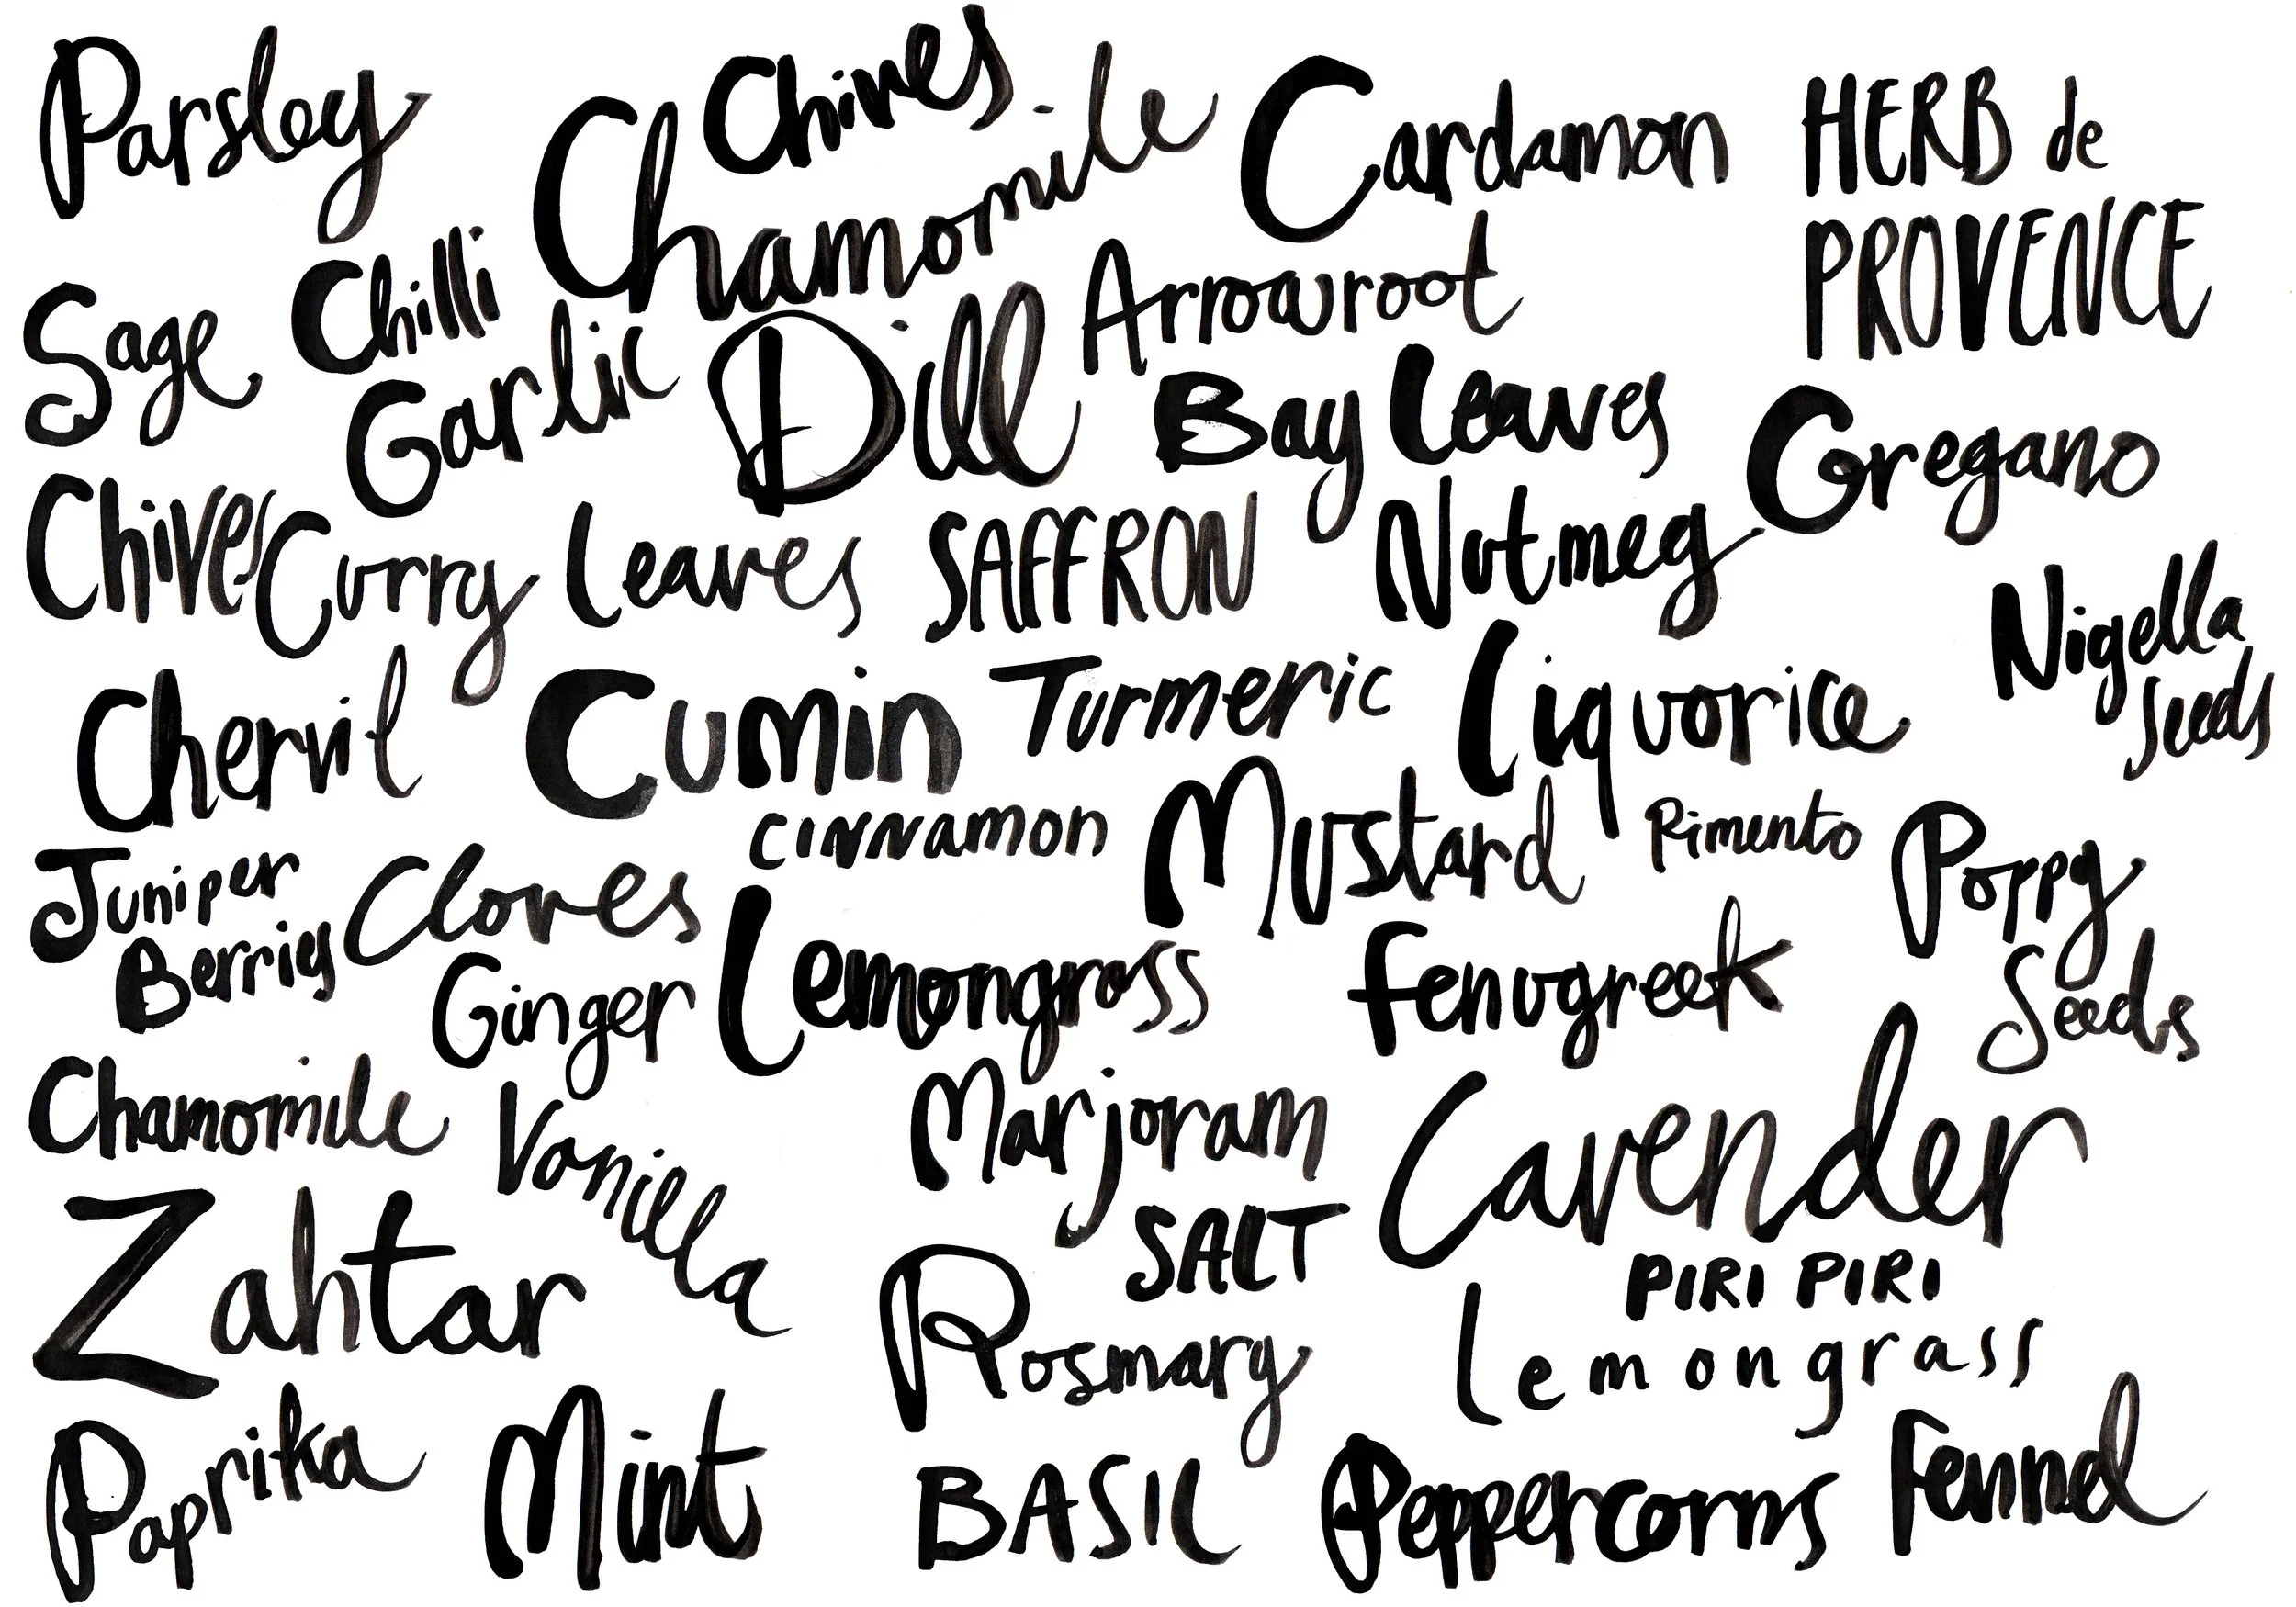 Parsley
Chives
Chamomile
Cardamon
HERB de
PROVENCE
Sage
Chilli
Garlic
Dill
Arrowroot
Bay Leaves
Oregano
Chives
Curry Leaves
SAFFRON
Nutmeg
Nigella
Seeds
Chervil
Cumin
Turmeric
Liquorice
cinnamon
Mustard
Pimento
Poppy
Seeds
Juniper
Berries
Cloves
Ginger
Lemongrass
fenugreek
Chamomile
Vanilla
Marjoram
Lavender
Zahtar
SALT
PIRI PIRI
Rosmary
Lemongrass
Paprika
Mint
BASIL
Peppercorns
Fennel